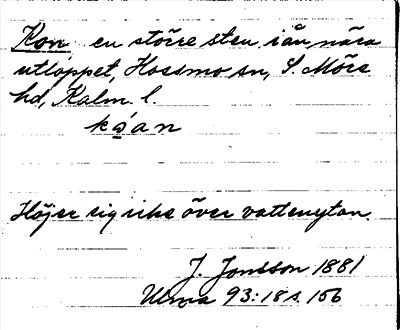 Kon, en större sten i ån nära
utloppet, Hossmo sn, S. Möre
hd, Kalm. l.
kóan
Höjer sig icke över vattenytan.
J. Jonsson 1881
Ulma 93:18 s. 156